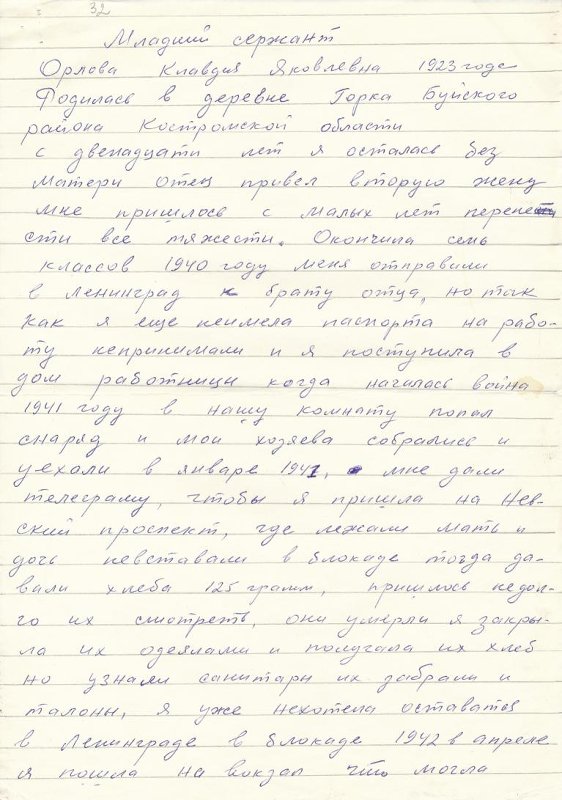 32
Младший сержант
Орлова Клавдия Яковлевна 1923 годе
Родилась в деревне Горка Буйского
района Костромской области
с двенадцати лет я осталась без
матери отец привел вторую жену
мне пришлось с малых лет перене
сти все тяжести. Окончила семь
классов 1940 году меня отправили
в Ленинград к брату отца, но так
как я еще неимела паспорта на рабо-
ту непринимали и я поступила в
дом работницы когда началась война
1941 году в нашу комнату попал
снаряд и мои хозяева собрались и
уехали в январе 1941, мне дали
телеграму, чтобы я пришла на Нев-
ский проспект, где лежали мать и
дочь невставали в блокаде тогда да-
вали хлеба 125 грамм, пришлось недол-
го их смотреть, они умерли я закры-
ла их одеялами и получала их хлеб
но узнали санитары их забрали и
талоны, я уже нехотела оставатся
в Ленинграде в блокаде 1942 в апреле
я пошла на вокзал что могла